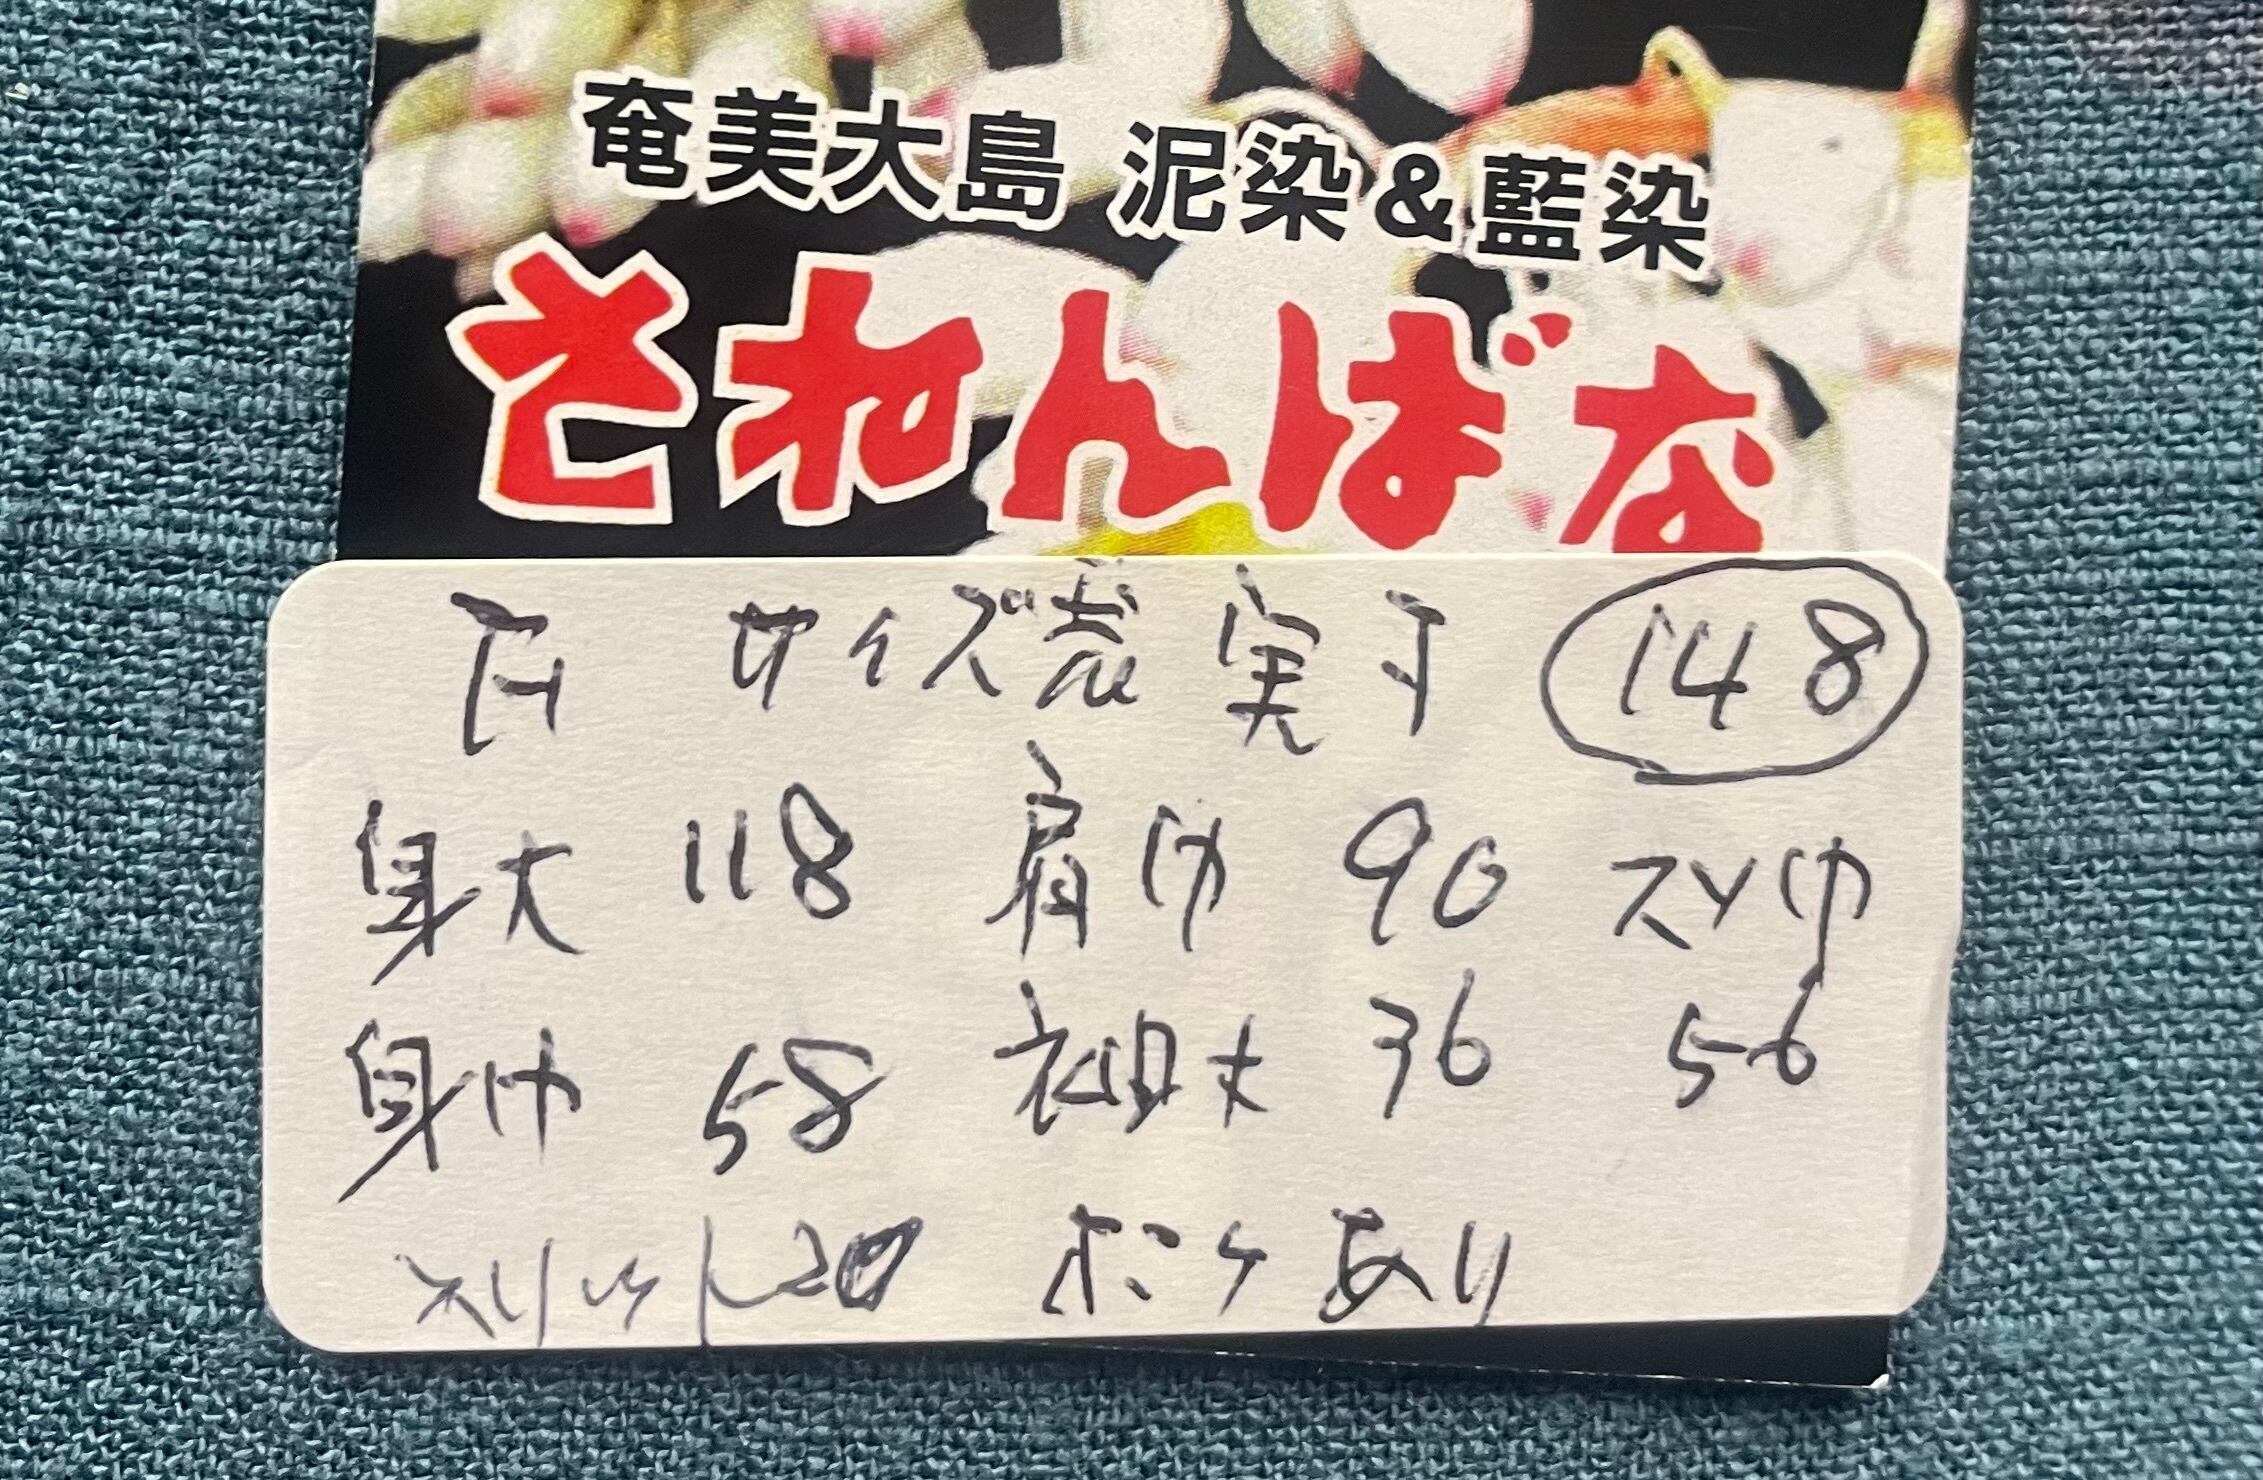 奄美大島 泥染&藍染
さねんばな
サイズ表 実寸 148
身丈 118 肩巾 90 スソ巾
身巾 58 袖丈 36 56
スリット20 ポッケあり